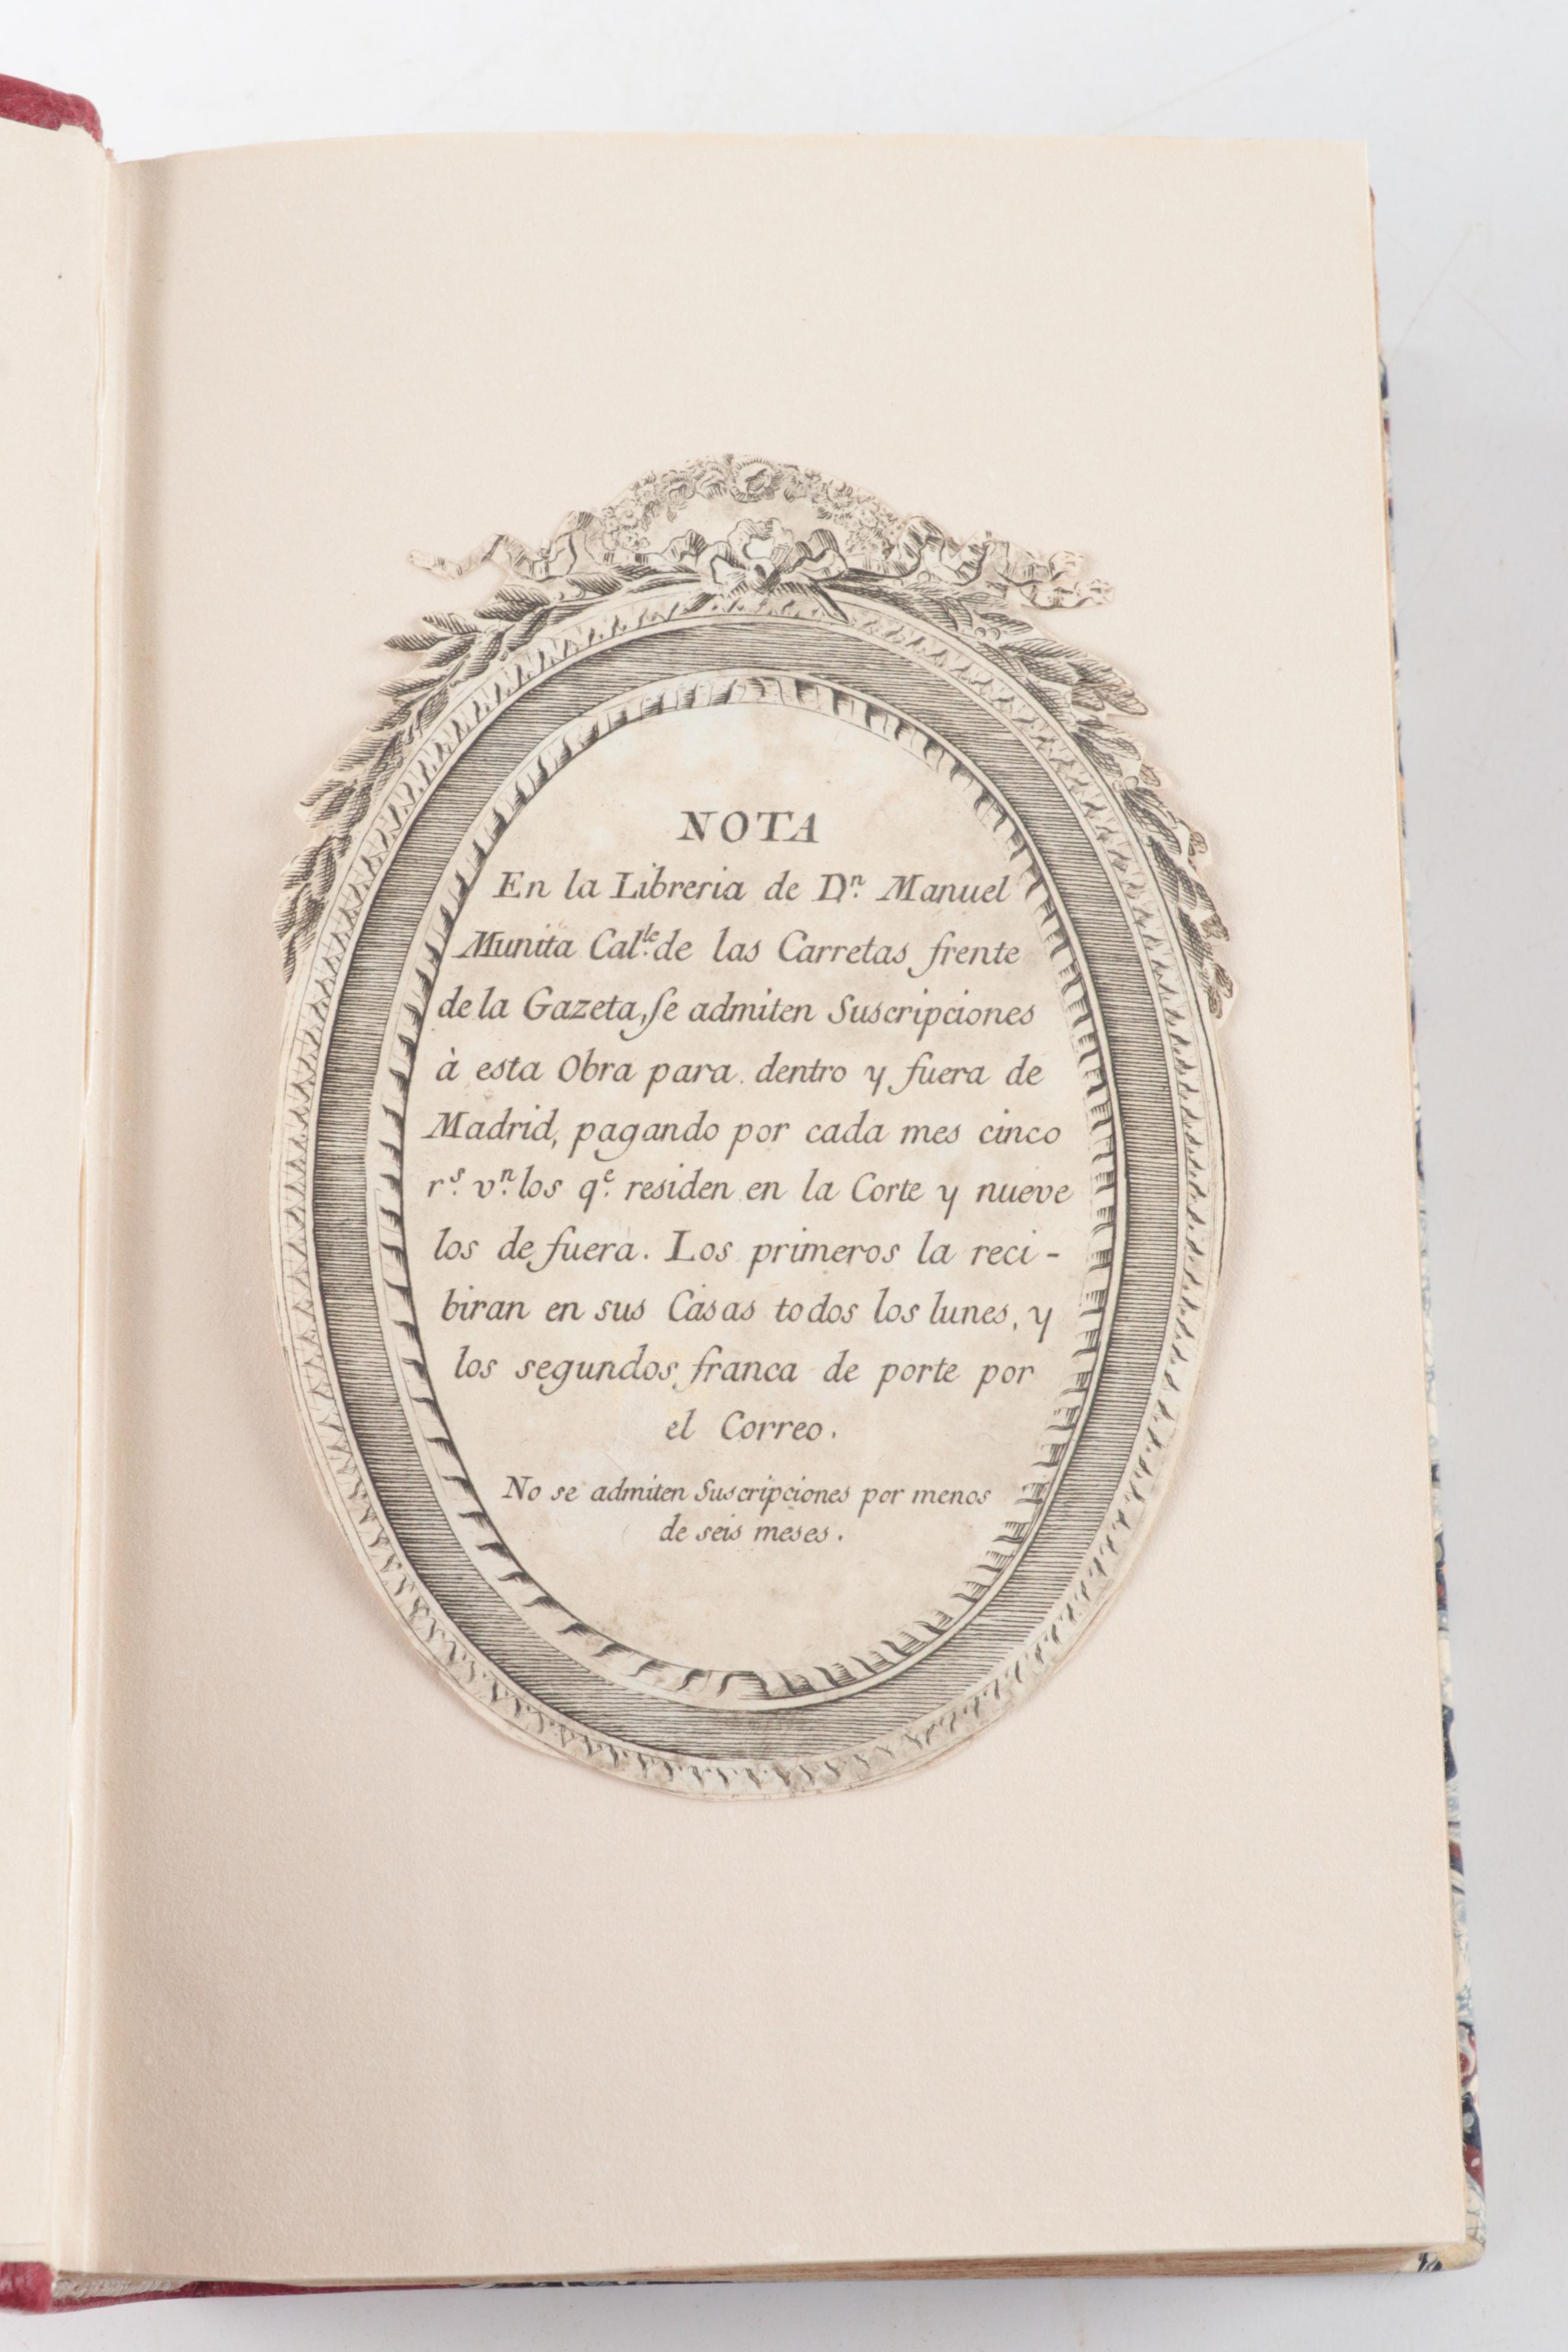 NOTA
En la Libreria de Dⁿ. Manuel
Munita Calˡᵉ. de las Carretas frente
de la Gazeta, ſe admiten Suscripciones
à esta Obra para dentro y fuera de
Madrid, pagando por cada mes cinco
rˢ. vⁿ. los qᵉ. residen en la Corte y nueve
los de fuera. Los primeros la reci-
biran en sus Casas todos los lunes, y
los segundos franca de porte por
el Correo.
No se admiten Suscripciones por menos
de seis meses.